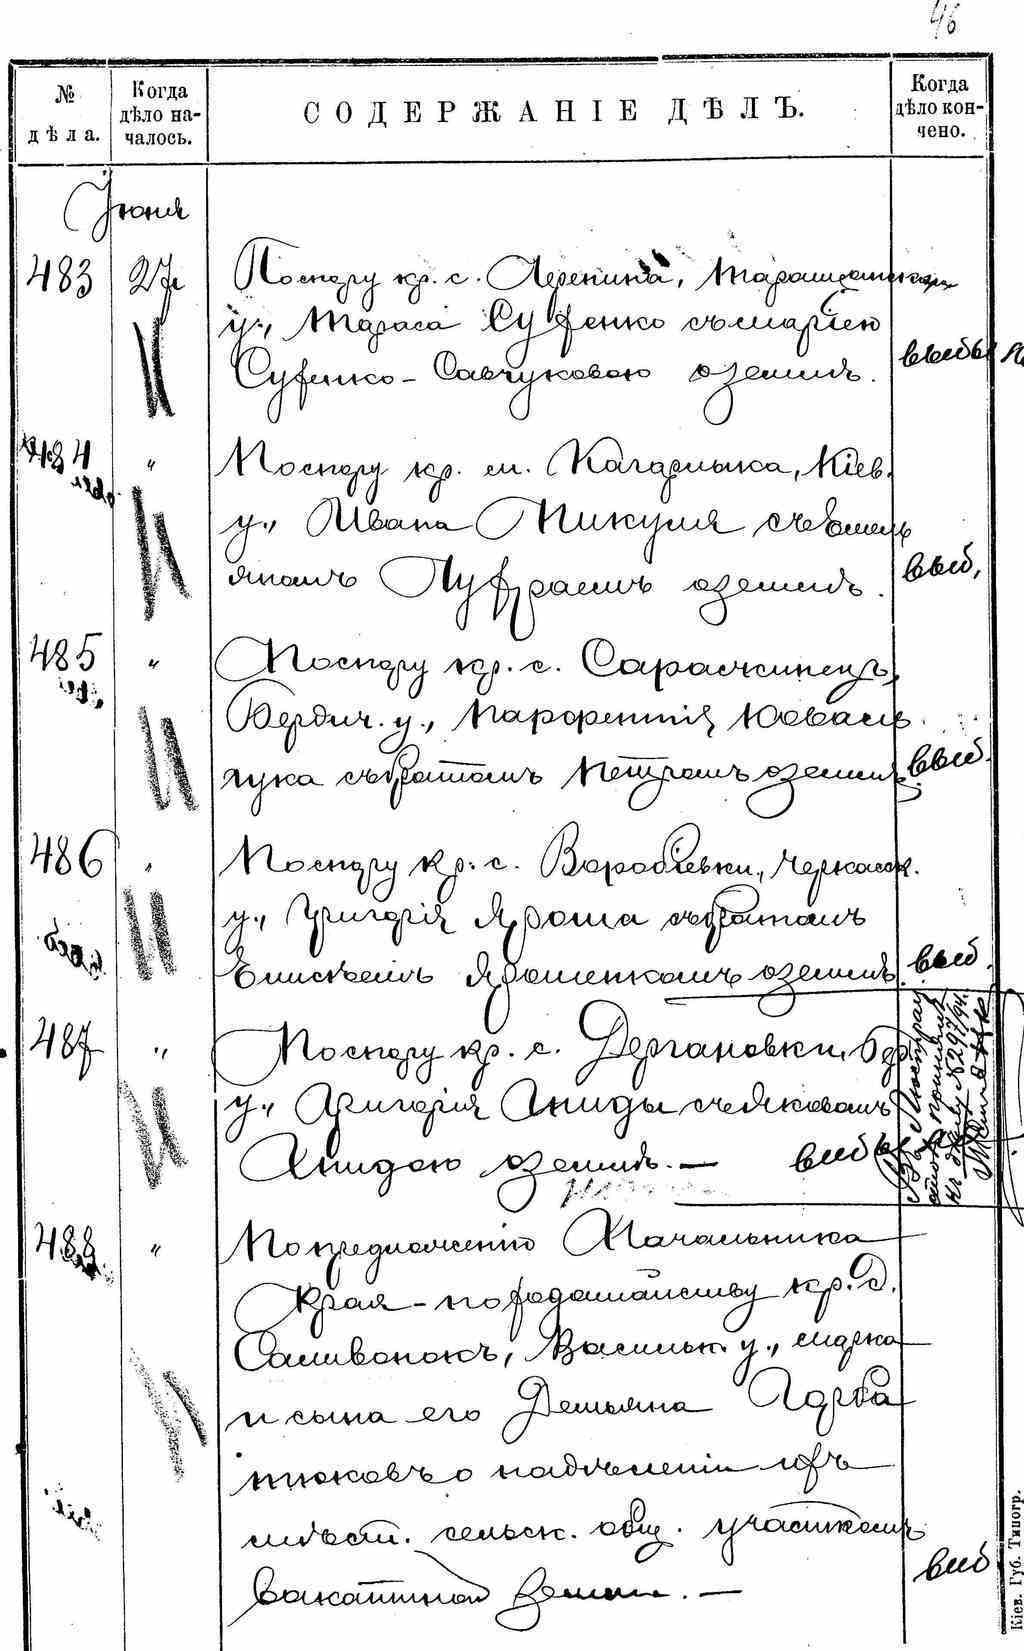 46
№ дѣла.
Когда дѣло началось.
СОДЕРЖАНІЕ ДѢЛЪ.
Когда дѣло кончено.
Іюня
483 27
По спору кр. с. Лучина, Таращанскаго
у., Тараса Суфенко съ Маріею
Суфенко-Савчуковою о землѣ.
выб
484 "
По спору кр. м. Кагарлыка, Кіев.
у., Ивана Микуля съ Емель
яномъ о землѣ.
выб.
485 "
По спору кр. с.
Бердич. у., Парфентія Коваль
чука съ братомъ Петромъ о землѣ
выб.
486 "
По спору кр. с. Воробіевки, Черкасск.
у., Григорія Яроша съ братомъ
Ярошенкомъ о землѣ.
выб.
487 "
По спору кр. с. Дергановки,
у., Григорія Хниды съ Яковомъ
Хнидою о землѣ. —
выбы
къ дѣлу № 297/94.
488 "
По предложенію Начальника
Края - по ходатайству кр. д.
Саливонокъ, Васильк. у., Марка
и сына его Демьяна Горба
тюковъ о надѣленіи ихъ
мѣстн. сельск. общ. участкомъ
вакантной земли. —
выб
Кіев. Губ. Типогр.